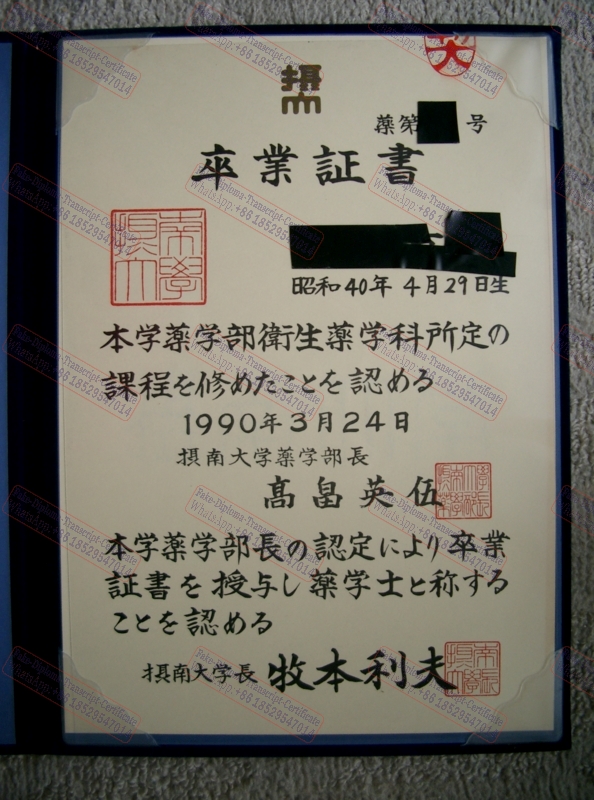 摂大
薬第 号
卒業証書
摂南大学
昭和40年 4月29日生
本学薬学部衛生薬学科所定の
課程を修めたことを認める
1990年3月24日
摂南大学薬学部長
髙畠英伍
本学薬学部長の認定により卒業
証書を授与し薬学士と称する
ことを認める
摂南大学長 牧本利夫
Fake-Diploma-Transcript-Certificate
WhatsApp:+8618529547014